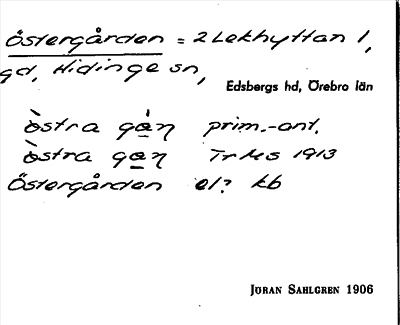 Östergården = 2 Lekhyttan 1,
gd, Hidinge sn,
Edsbergs hd, Örebro län
òstra gàŋ prim.-ant.
òstra gaŋ TrMs 1913
Östergården el? kb
Jöran Sahlgren 1906